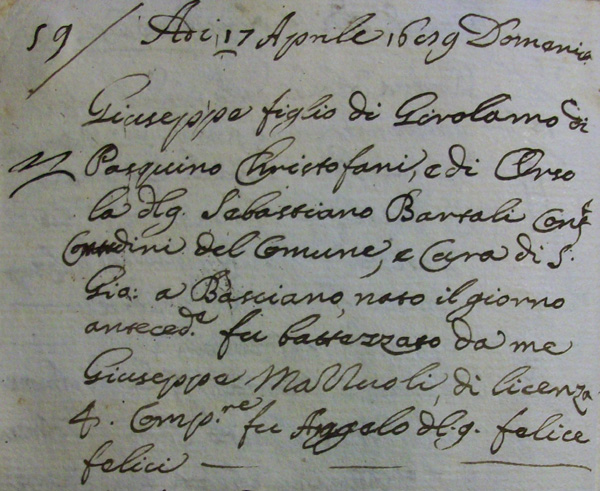 59 / Adi 17 Aprile 1689 Domenica
Giuseppe figlio di Girolamo di
Pasquino Christofani, e di Orso
la dlg. Sebastiano Bartali Cong.
Contadini del Comune, e Cura di S.
Gio: a Basciano, nato il giorno
anteced.e fu battezzato da me
Giuseppe di licenza
Comp.re fu Angelo dl.g. felice
felici